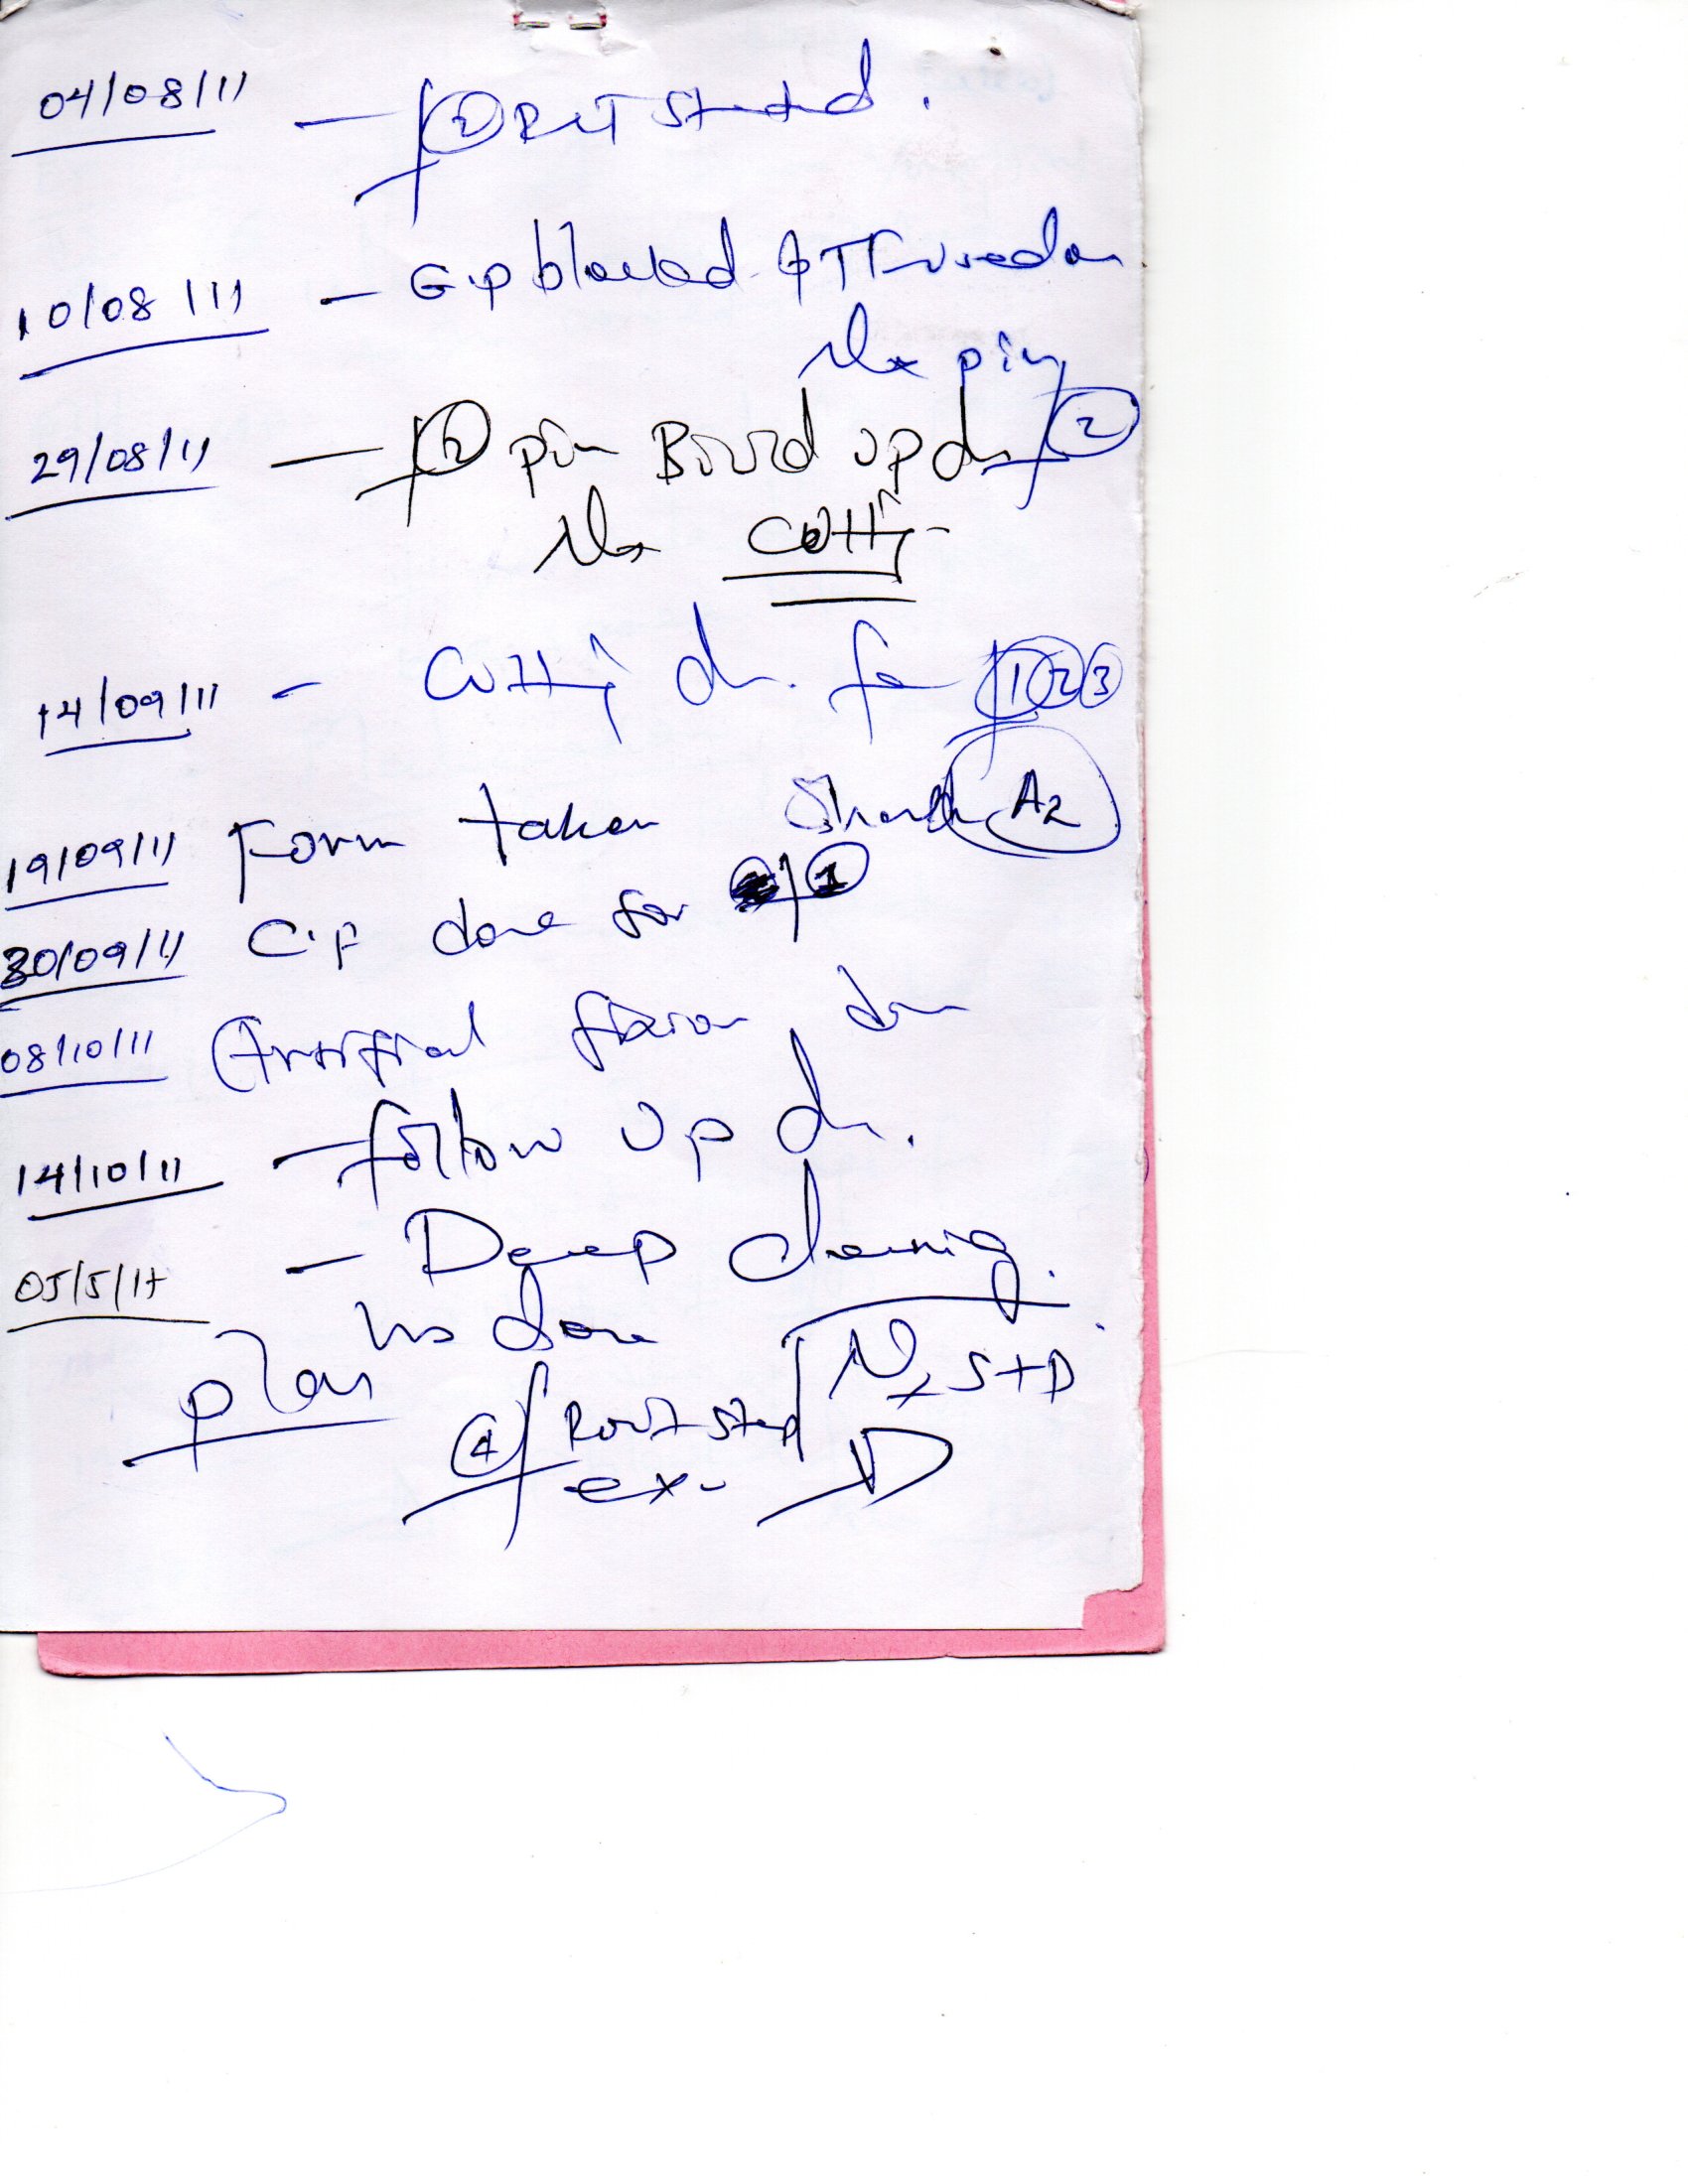 04/08/11 — 2 RCT started.
10/08/11 — G.p blocked & TF used on
Nx pin
29/08/11 — 2 pin Build up dn 2
Nx cutting
14/09/11 - Cutting dn. for 1 2 3
19/09/11 Form taken Shade A2
30/09/11 C.F done for 1
08/10/11 Artifical done
14/10/11 — Follow up dn.
05/5/17 — Deep cleaning.
plan done
Nx S+D
4 Root
ex- D